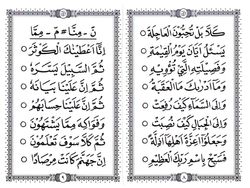 كَلَّا بَلْ تُحِبُّونَ الْعَاجِلَةَ
يَسْئَلُ أَيَّانَ يَوْمُ الْقِيٰمَةِ
وَفَصِيلَتِهِ الَّتِي تُؤْوِيهِ
وَمَا أَدْرٰىكَ مَا الْعَقَبَةُ
وَإِلَى السَّمَاءِ كَيْفَ رُفِعَتْ
وَإِلَى الْجِبَالِ كَيْفَ نُصِبَتْ
وَجَعَلُوا أَعِزَّةَ أَهْلِهَا أَذِلَّةً
فَسَبِّحْ بِاسْمِ رَبِّكَ الْعَظِيمِ
نَ - مِنَّا # مَ - مِمَّا
إِنَّا أَعْطَيْنٰكَ الْكَوْثَرَ
ثُمَّ السَّبِيلَ يَسَّرَهُ
ثُمَّ إِنَّ عَلَيْنَا حِسَابَهُمْ
وَفَوَاكِهَ مِمَّا يَشْتَهُونَ
ثُمَّ كَلَّا سَوْفَ تَعْلَمُونَ
إِنَّ جَهَنَّمَ كَانَتْ مِرْصَادًا